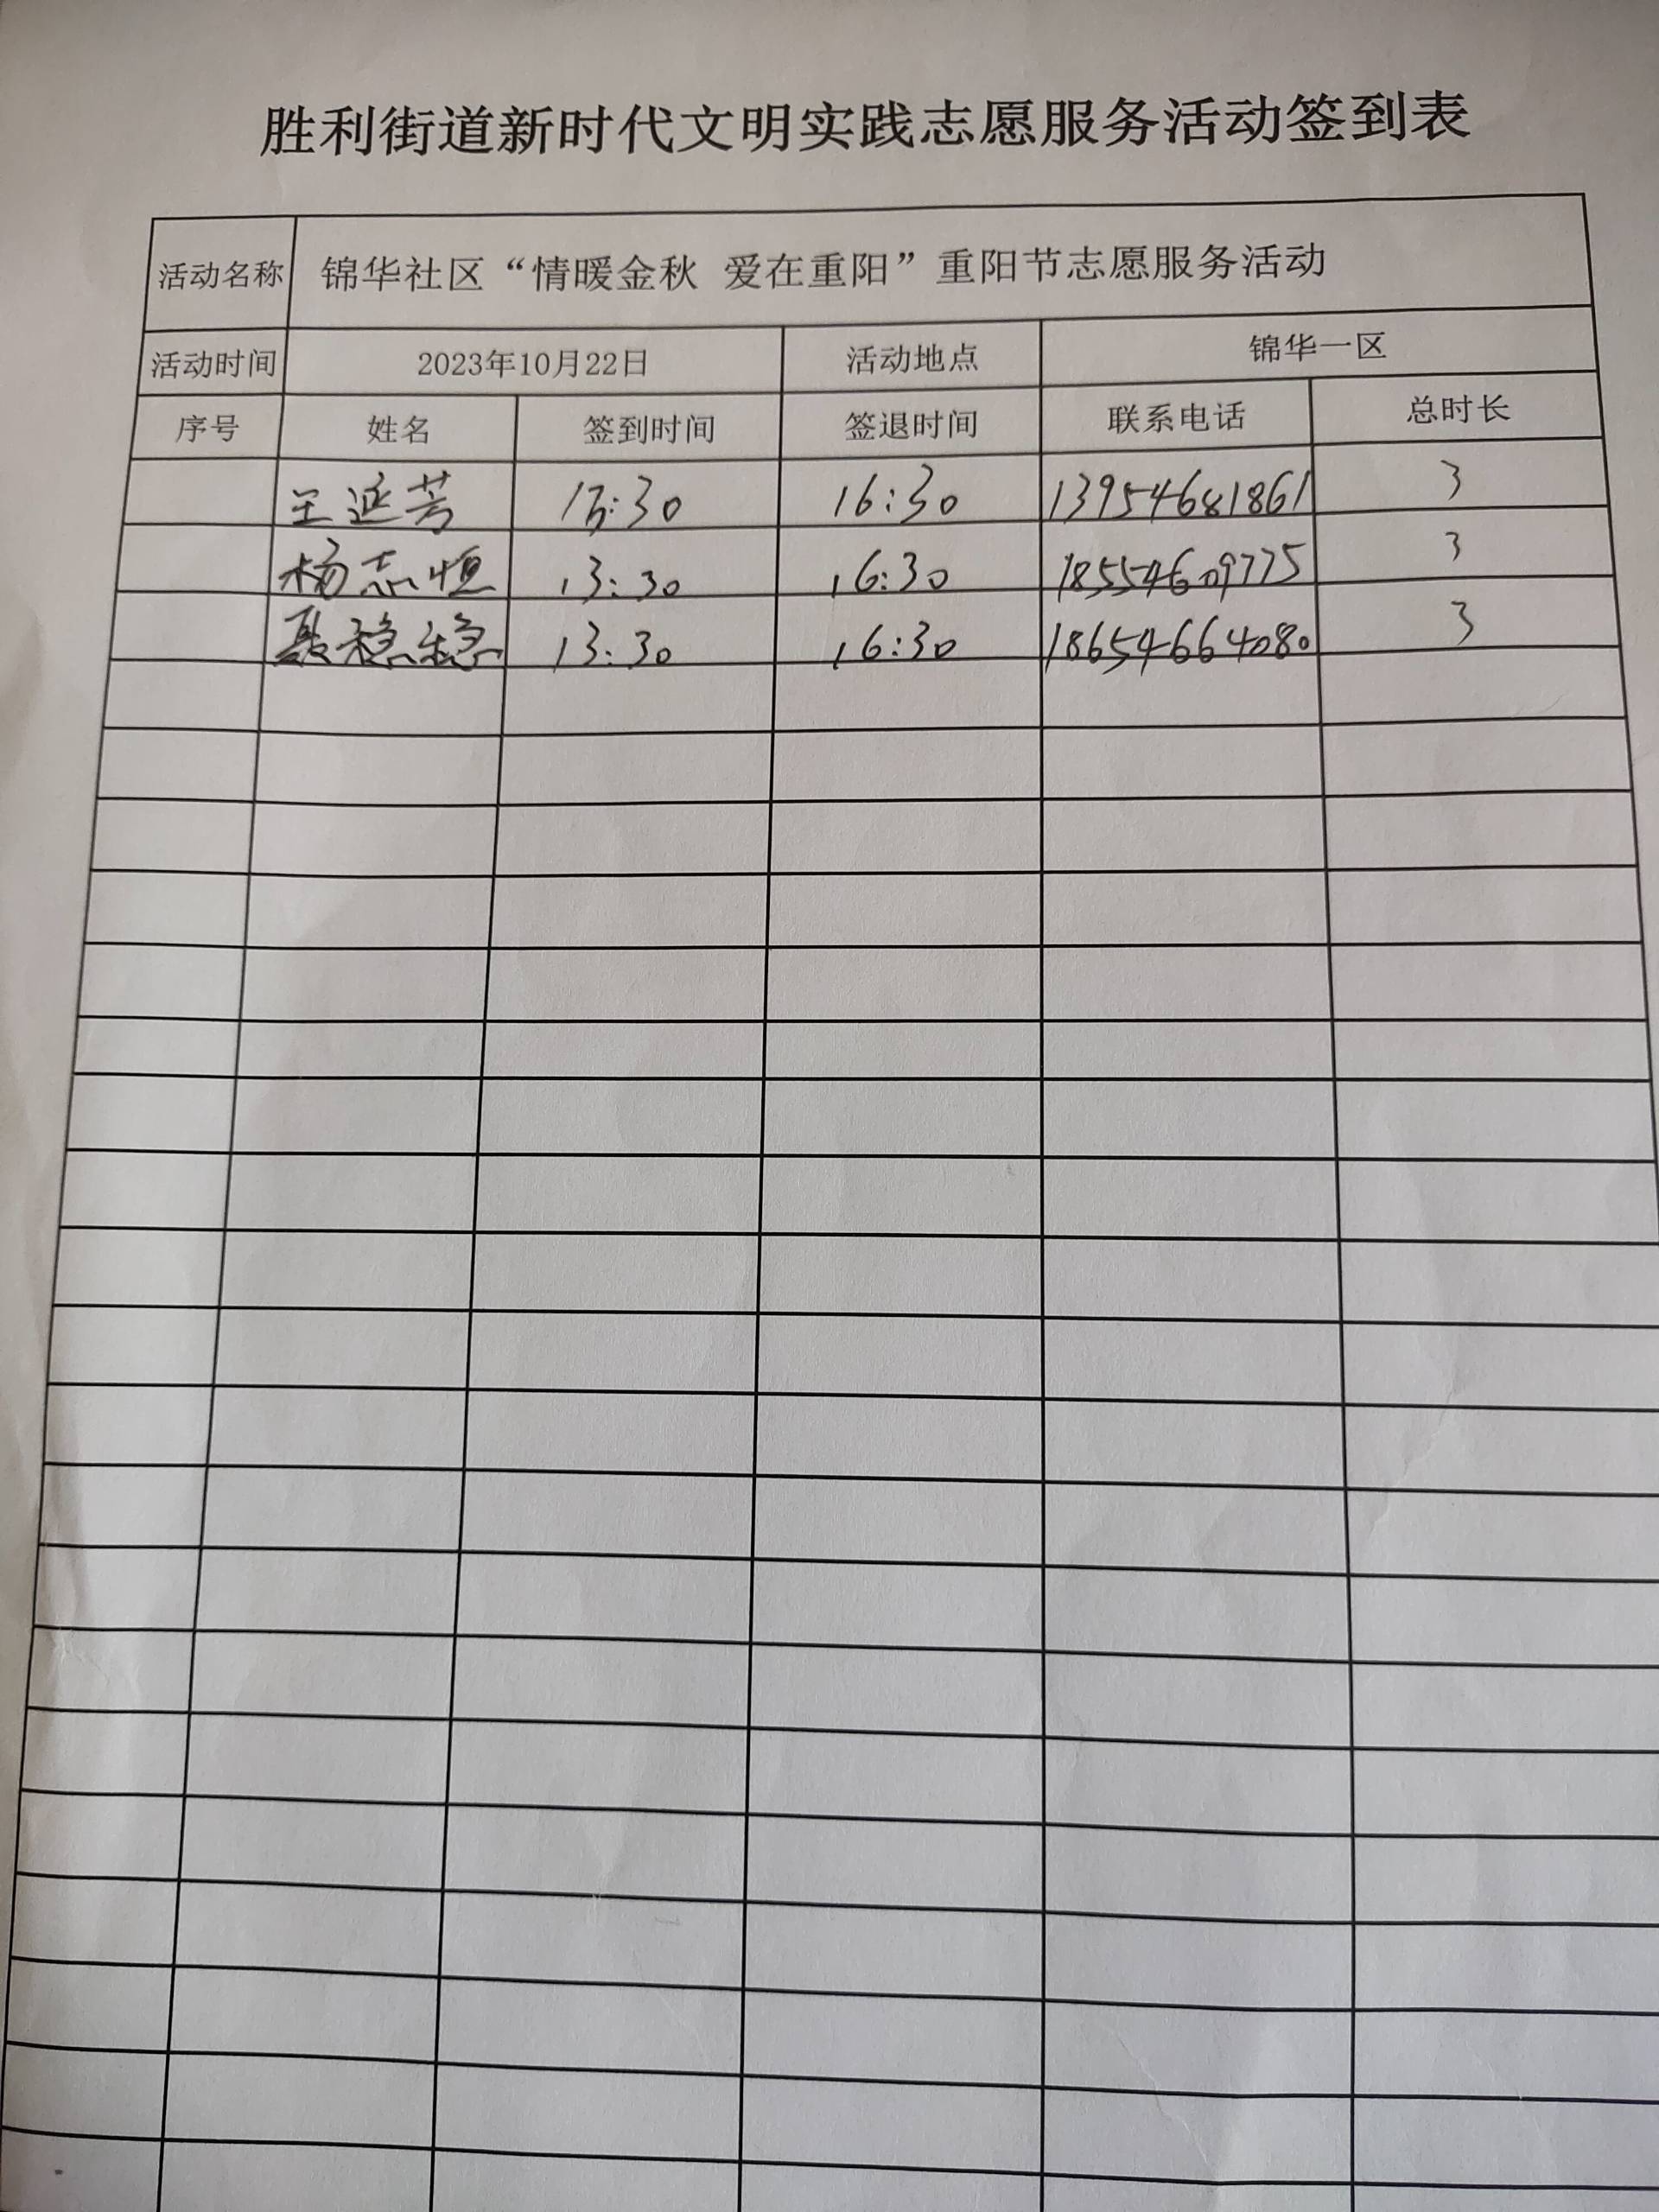 胜利街道新时代文明实践志愿服务活动签到表
活动名称 锦华社区“情暖金秋 爱在重阳”重阳节志愿服务活动
活动时间 2023年10月22日 活动地点 锦华一区
序号 姓名 签到时间 签退时间 联系电话 总时长
王延芳 13:30 16:30 13954681861 3
杨志恒 13:30 16:30 18554609775 3
聂稳稳 13:30 16:30 18654664080 3